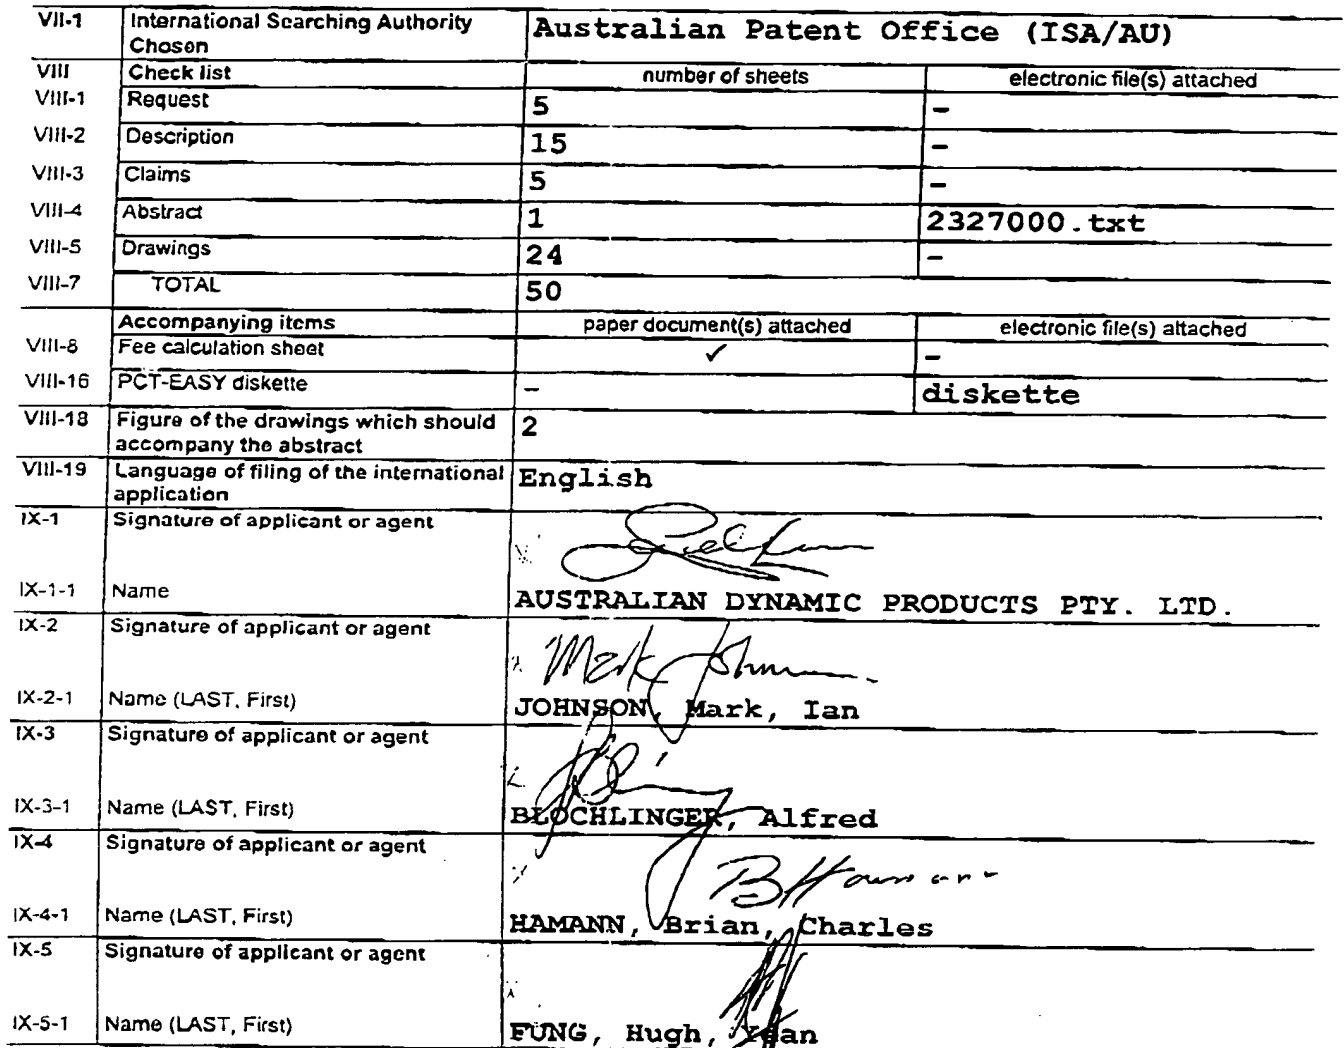 VII-1 International Searching Authority Chosen Australian Patent Office (ISA/AU)
VIII Check list number of sheets electronic file(s) attached
VIII-1 Request 5 -
VIII-2 Description 15 -
VIII-3 Claims 5 -
VIII-4 Abstract 1 2327000.txt
VIII-5 Drawings 24 -
VIII-7 TOTAL 50
Accompanying items paper document(s) attached electronic file(s) attached
VIII-8 Fee calculation sheet ✓ -
VIII-16 PCT-EASY diskette - diskette
VIII-18 Figure of the drawings which should accompany the abstract 2
VIII-19 Language of filing of the international application English
IX-1 Signature of applicant or agent
IX-1-1 Name AUSTRALIAN DYNAMIC PRODUCTS PTY. LTD.
IX-2 Signature of applicant or agent Mark Johnson
IX-2-1 Name (LAST, First) JOHNSON, Mark, Ian
IX-3 Signature of applicant or agent
IX-3-1 Name (LAST, First) BLOCHLINGER, Alfred
IX-4 Signature of applicant or agent
IX-4-1 Name (LAST, First) HAMANN, Brian, Charles
IX-5 Signature of applicant or agent
IX-5-1 Name (LAST, First) FUNG, Hugh,